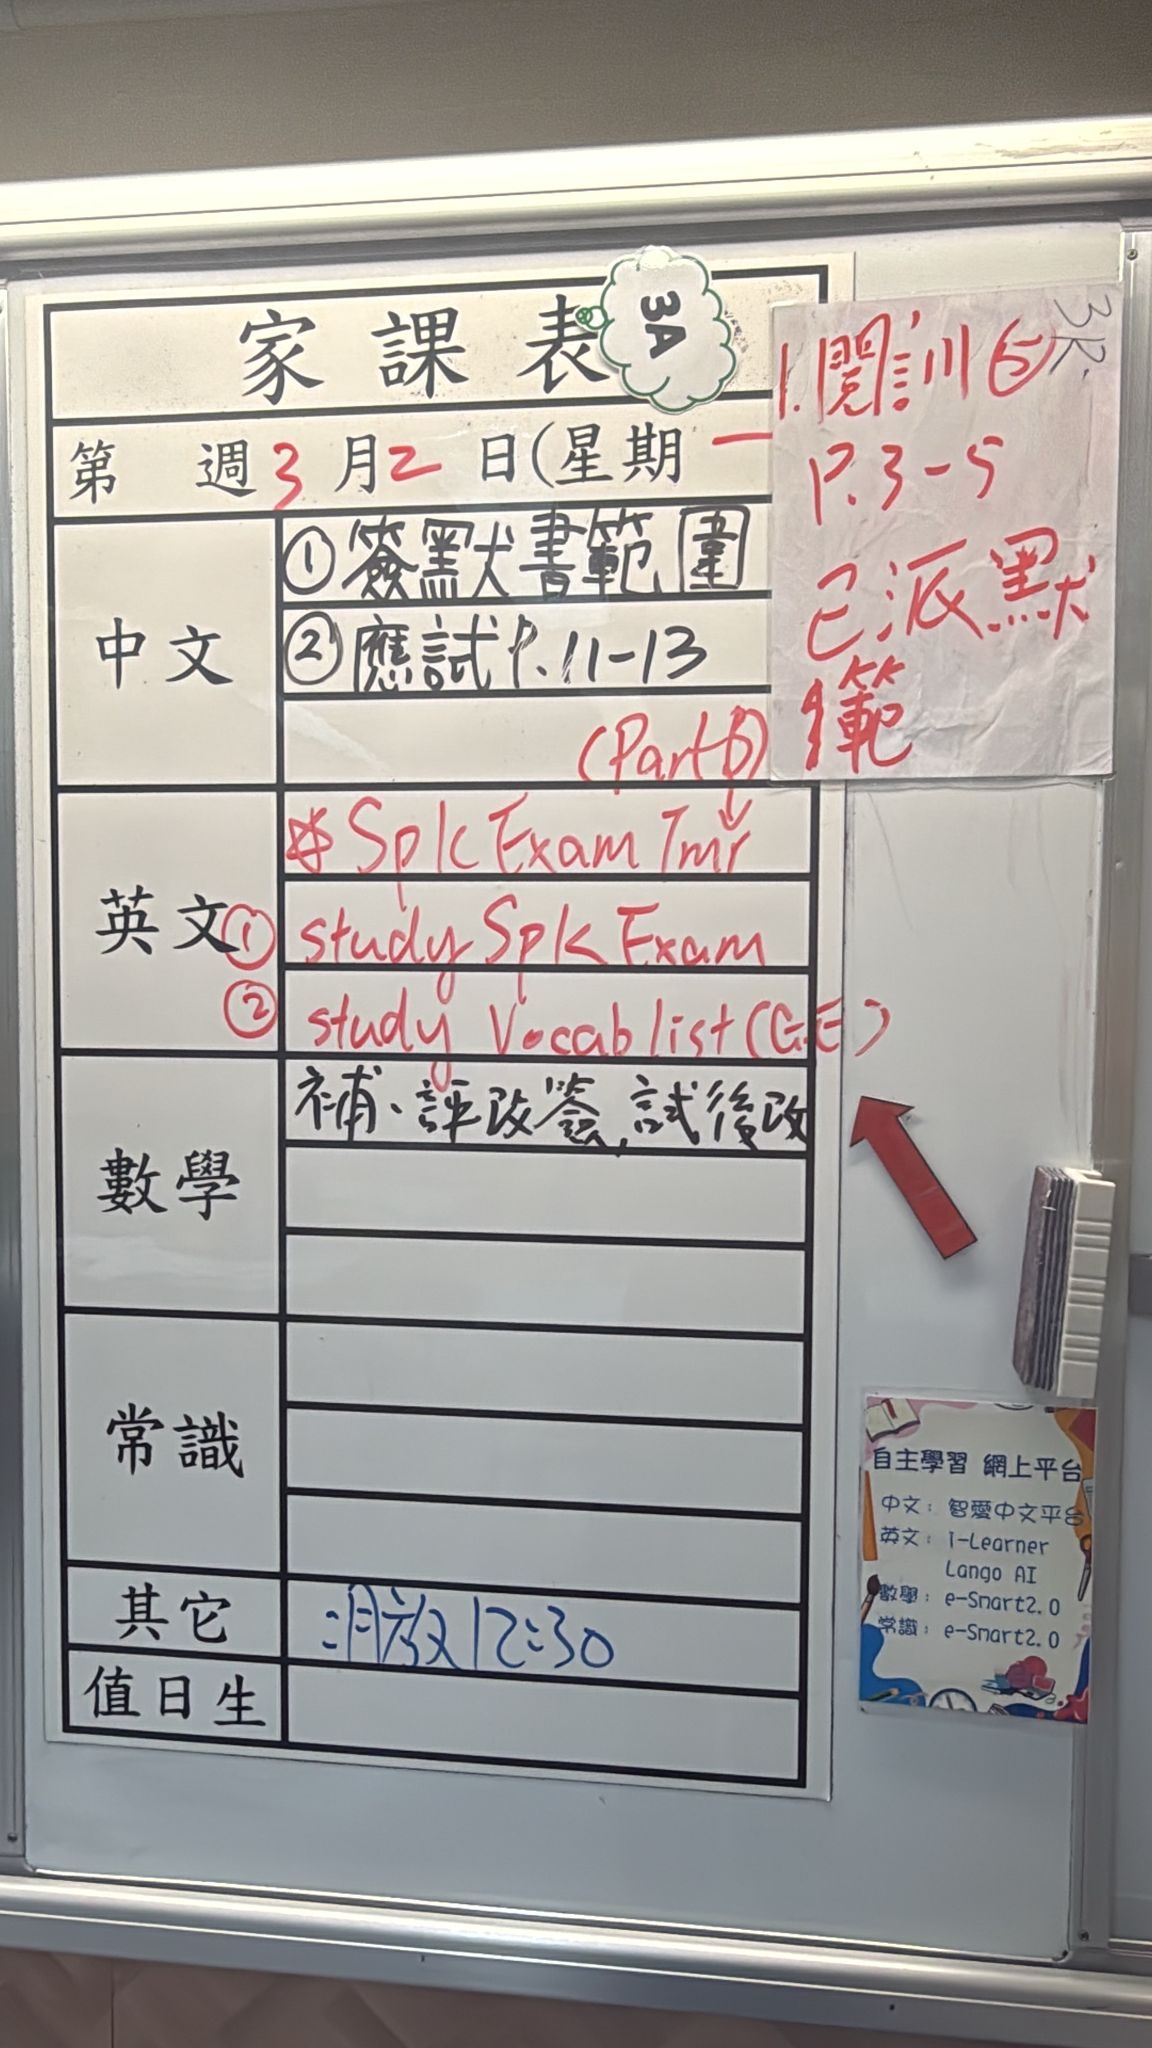 家課表
3A
第 週3月2日(星期一
中文
①簽默書範圍
②應試P.11-13
(Part B)
英文
* Spk Exam Tmr
① study Spk Exam
② study Vocab list (G.E)
數學
補、評改簽,試後改
常識
其它
放12:30
值日生
3R
1.閱訓⑤
P.3-5
已派默
範
自主學習 網上平台
中文: 智愛中文平台
英文: I-Learner
Lango AI
數學: e-Smart2.0
常識: e-Smart2.0